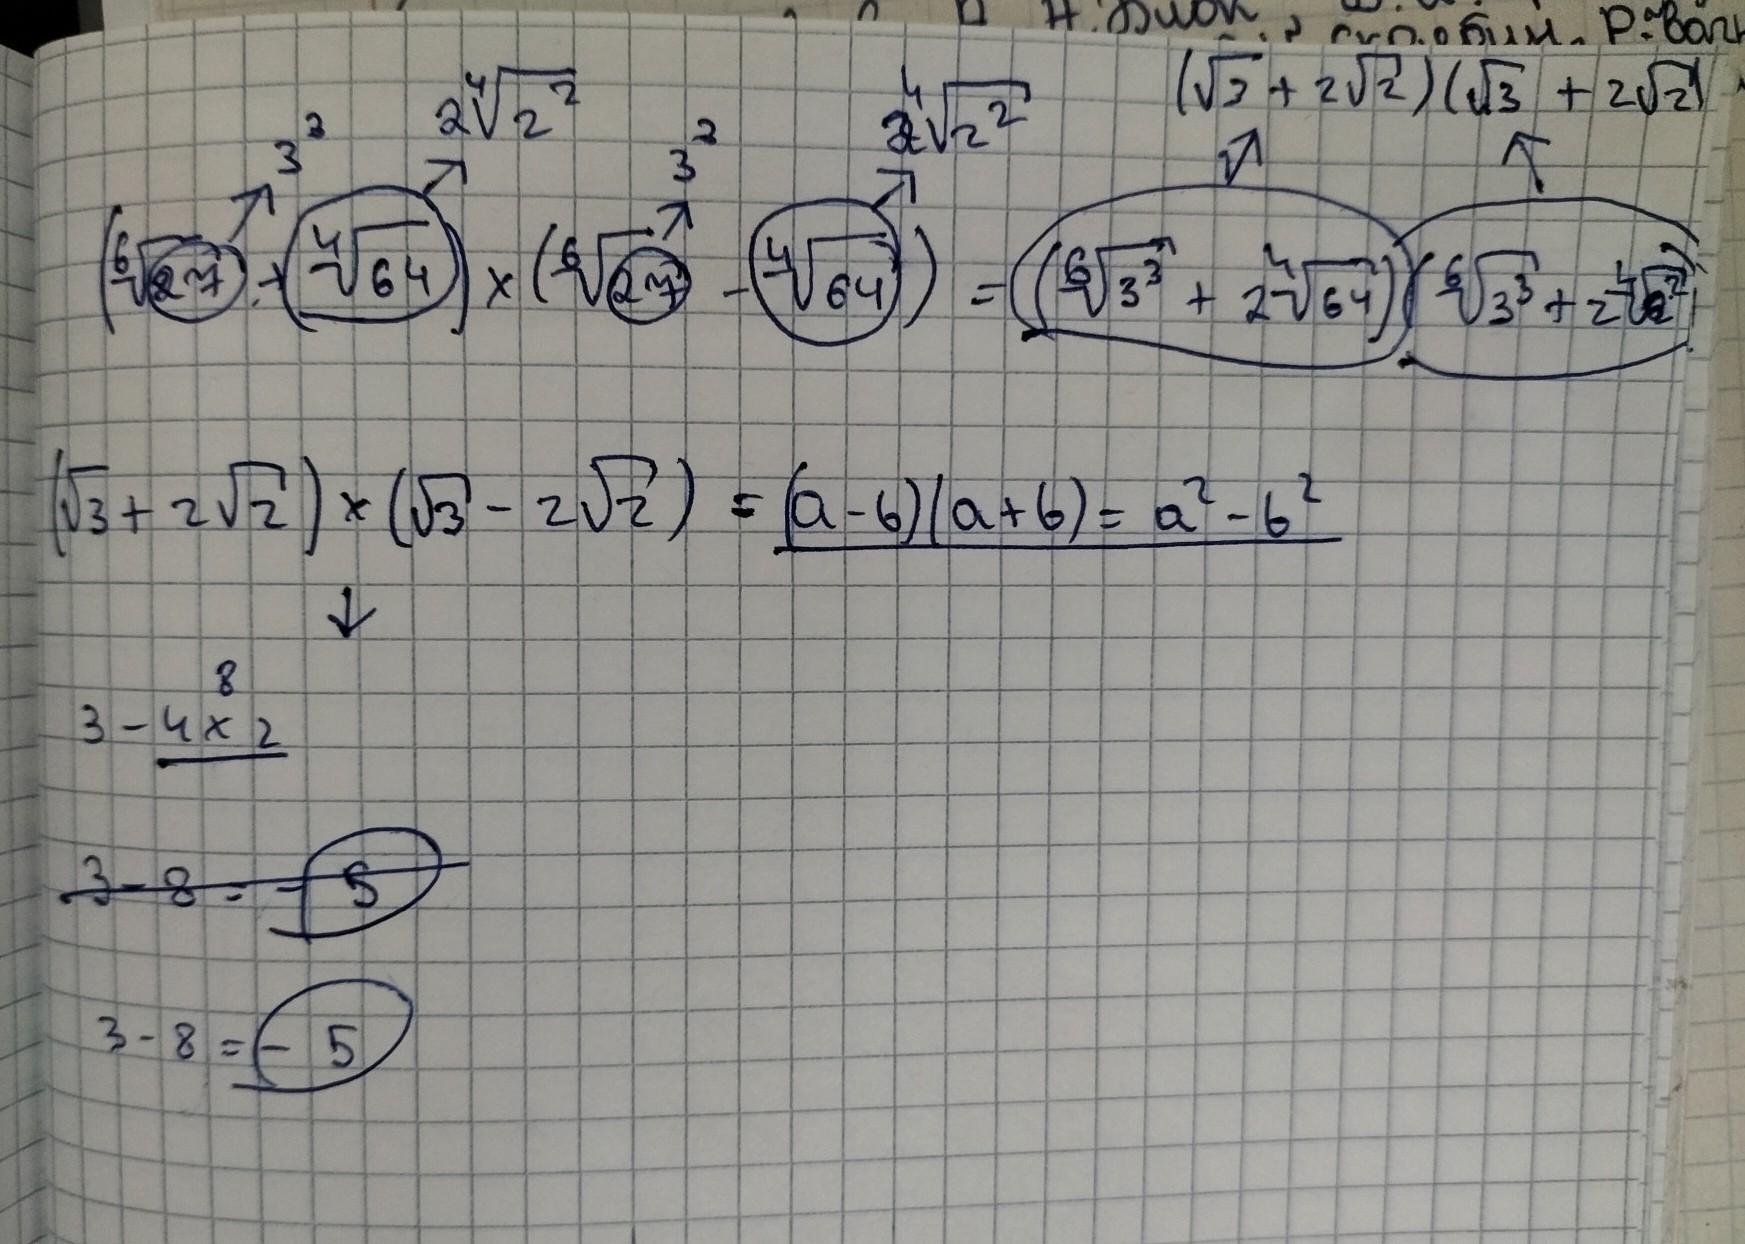 Н. Блок
Р. Валь
(√3 + 2√2)(√3 + 2√2)
3³ 2⁴√2² 3³ 2⁴√2²
(⁶√27 + ⁴√64) × (⁶√27 - ⁴√64) = (⁶√3³ + 2⁴√64)(⁶√3³ + 2⁴√2²)
(√3 + 2√2) × (√3 - 2√2) = (a - b)(a + b) = a² - b²
↓
8
3 - 4 × 2
3 - 8 = - 5
3 - 8 = - 5